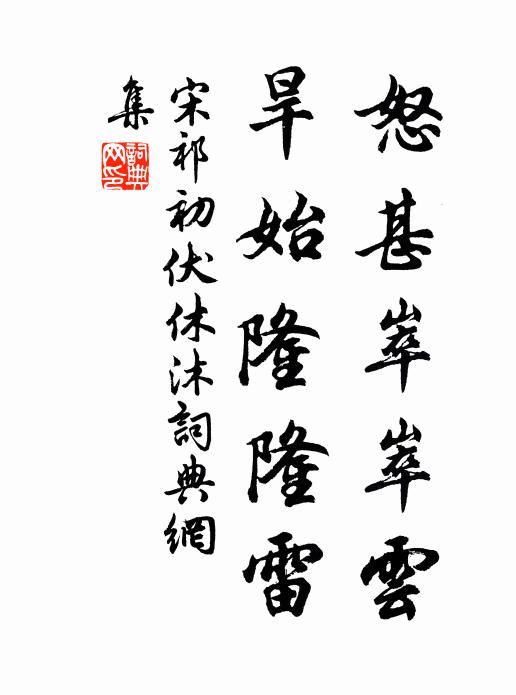 怒甚崒崒雲
旱始隆隆雷
宋祁初伏休沐詞典網
集
詞典
网印